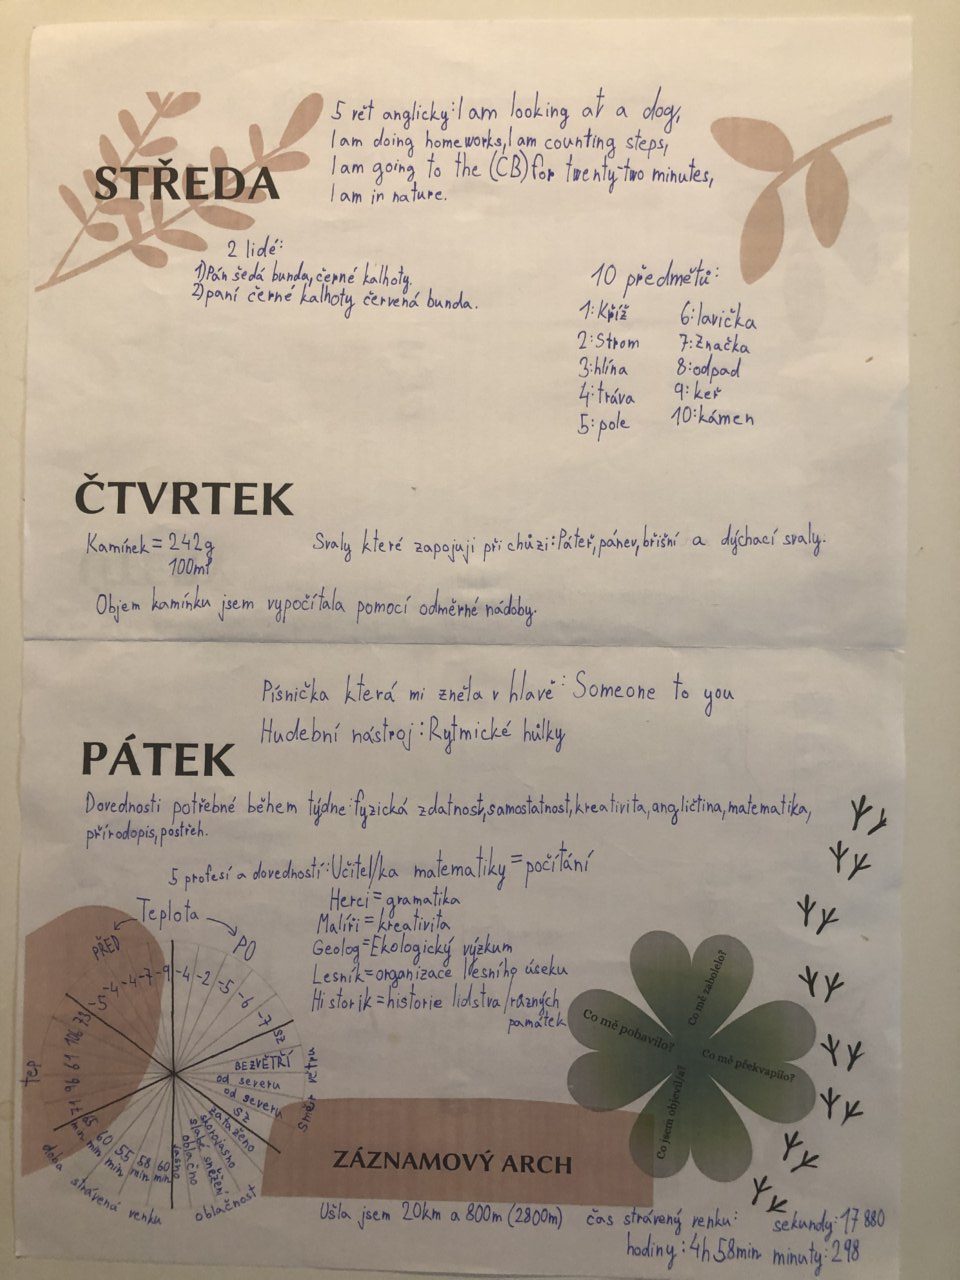 5 vět anglicky: I am looking at a dog,
I am doing homeworks, I am counting steps,
I am going to the (ČB) for twenty-two minutes,
I am in nature.
STŘEDA
2 lidé:
1) Pán šedá bunda, černé kalhoty.
2) paní černé kalhoty červená bunda.
10 předmětů:
1: Kříž
2: Strom
3: hlína
4: tráva
5: pole
6: lavička
7: Značka
8: odpad
9: keř
10: kámen
ČTVRTEK
Kamínek = 242g
100ml
Svaly které zapojuji při chůzi: Páteř, pánev, břišní a dýchací svaly.
Objem kamínku jsem vypočítala pomocí odměrné nádoby.
Písnička která mi zněla v hlavě: Someone to you
Hudební nástroj: Rytmické hůlky
PÁTEK
Dovednosti potřebné během týdne: fyzická zdatnost, samostatnost, kreativita, angličtina, matematika,
přírodopis, postřeh.
5 profesí a dovedností: Učitel/ka matematiky = počítání
Herci = gramatika
Malíři = kreativita
Geolog = Ekologický výzkum
Lesník = organizace lesního úseku
Historik = historie lidstva/různých
památek
Teplota
PŘED
-5 -4 -4 -7 -9
PO
-4 -2 -5 -6 -7
směr větru
SZ
BEZVĚTŘÍ
od severu
od severu
SZ
oblačnost
zataženo
skorojasno
slabé sněžení
oblačno
jasno
doba strávená venku
60 min
58 min
55 min
60 min
65 min
tep
71 96 91 106 73
Co mě pobavilo?
Co mě zabolelo?
Co mě překvapilo?
Co jsem objevil/a?
ZÁZNAMOVÝ ARCH
Ušla jsem 20km a 800m (2800m)
čas strávený venku: sekundy: 17 880
hodiny: 4h 58min minuty: 298